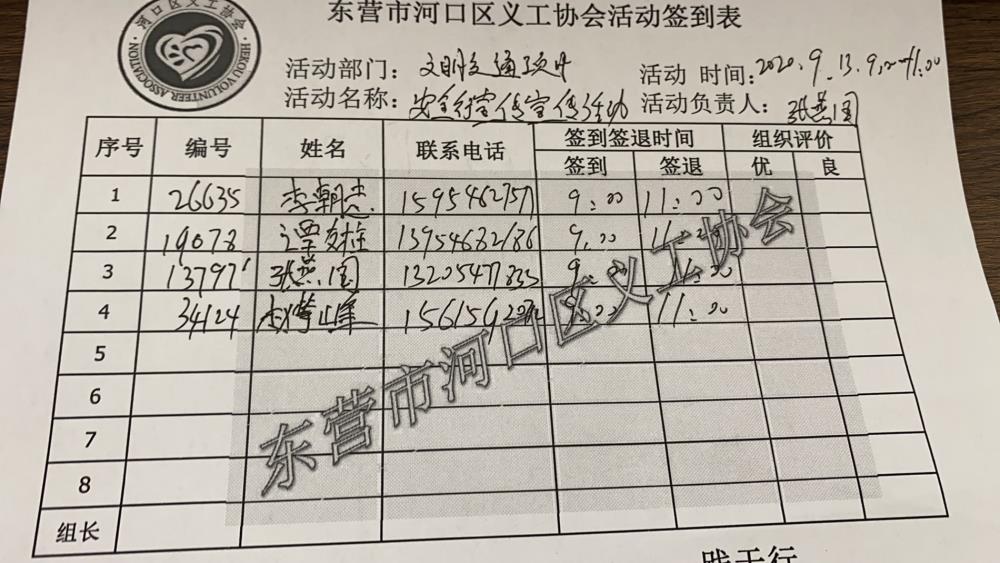 东营市河口区义工协会活动签到表
河口区义工协会
HEKOU VOLUNTEER ASSOCIATION
活动部门：文明交通项目
活动 时间：2020.9.13.9:00-11:00
活动名称：安全行宣传宣传活动
活动负责人：张燕国
序号 编号 姓名 联系电话 签到签退时间 组织评价
签到 签退 优 良
1 26635 李朝忠 15954627571 9:00 11:00
2 19078 谭文柱 13954682186 9:00 11:00
3 13797 张燕国 13205477833 9:00 11:00
4 34124 峰 9:00 11:00
5
6
7
8
组长
东营市河口区义工协会
践于行